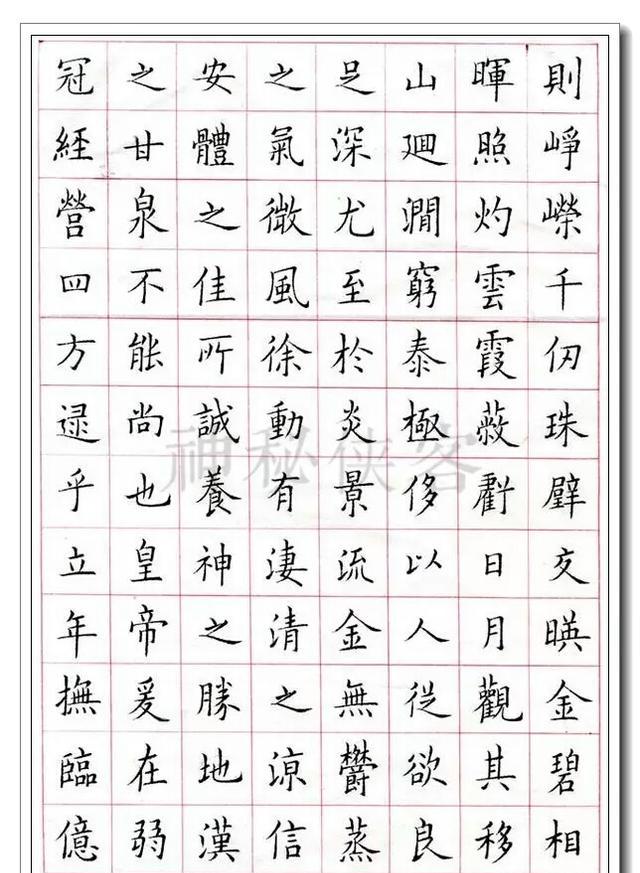 則崢嶸千仞珠璧交暎金碧相
暉照灼雲霞蔽虧日月觀其移
山迴澗窮泰極侈以人從欲良
足深尤至於炎景流金無鬱蒸
之氣微風徐動有淒清之涼信
安體之佳所誠養神之勝地漢
之甘泉不能尚也皇帝爰在弱
冠經營四方逮乎立年撫臨億
神秘侠客